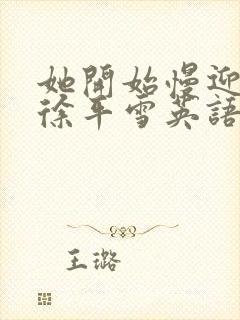 她開始慢迎
徐平雪英語
王璐